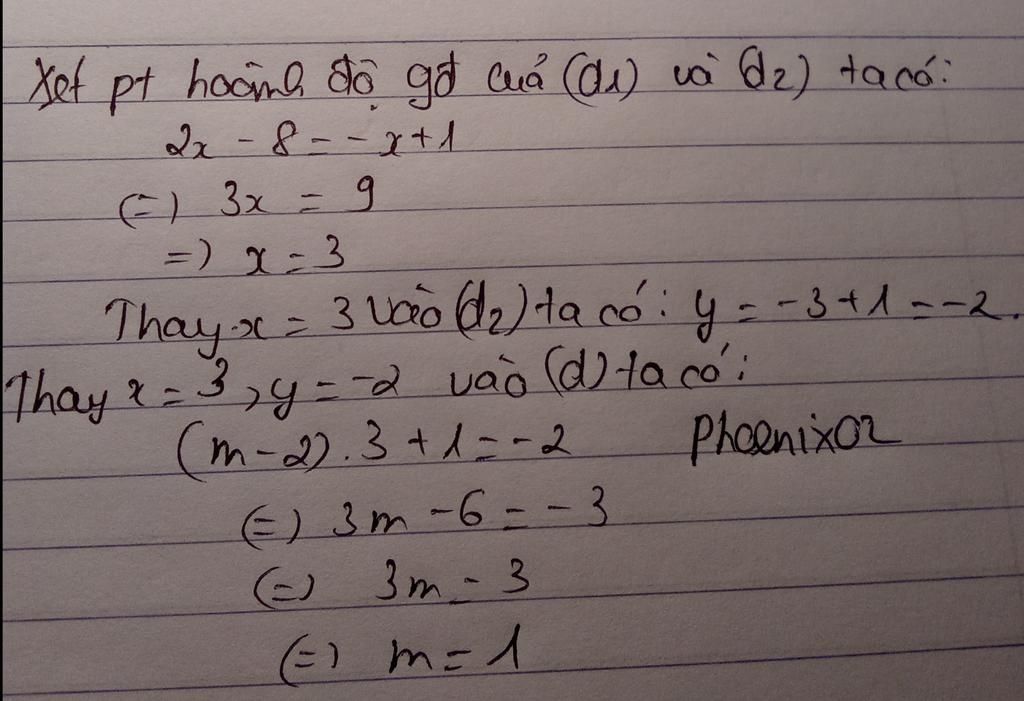 Xét pt hoành độ gđ của (d1) và (d2) ta có:
2x - 8 = -x + 1
(=) 3x = 9
=) x = 3
Thay x = 3 vào (d2) ta có: y = -3 + 1 = -2.
Thay x = 3, y = -2 vào (d) ta có:
(m-2).3 + 1 = -2 Phoenix02
(=) 3m - 6 = -3
(=) 3m = 3
(=) m = 1